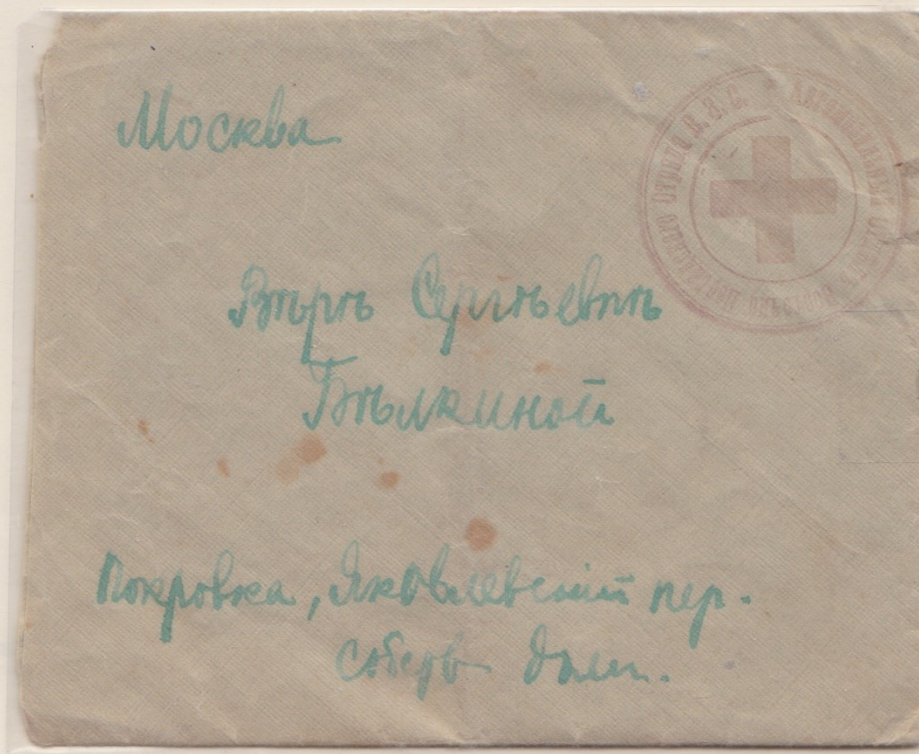 Москва
Вѣрѣ Сергѣевнѣ
Бѣлкиной
Покровка, Яковлевскій пер.
собств домъ.
В.З.С.